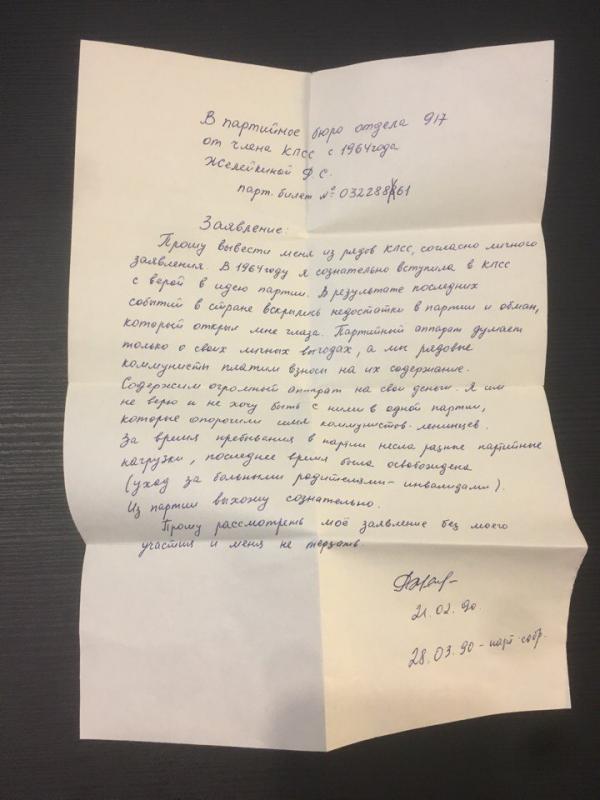 В партийное бюро отдела 917
от члена КПСС с 1964 года
Желейкиной Ф.С.
парт. билет № 03228861
Заявление:
Прошу вывести меня из рядов КПСС, согласно личного
заявления. В 1964 году я сознательно вступила в КПСС
с верой в идею партии. В результате последних
событий в стране вскрылись недостатки в партии и обман,
который открыл мне глаза. Партийный аппарат думает
только о своих личных выгодах, а мы рядовые
коммунисты платим взносы на их содержание.
Содержим огромный аппарат на свои деньги. Я им
не верю и не хочу быть с ними в одной партии,
которые опорочили имя коммунистов-ленинцев.
За время пребывания в партии несла разные партийные
нагрузки, последнее время была освобождена
(уход за больными родителями-инвалидами).
Из партии выхожу сознательно.
Прошу рассмотреть моё заявление без моего
участия и меня не терзать
21.02.90.
28.03.90 - парт. собр.